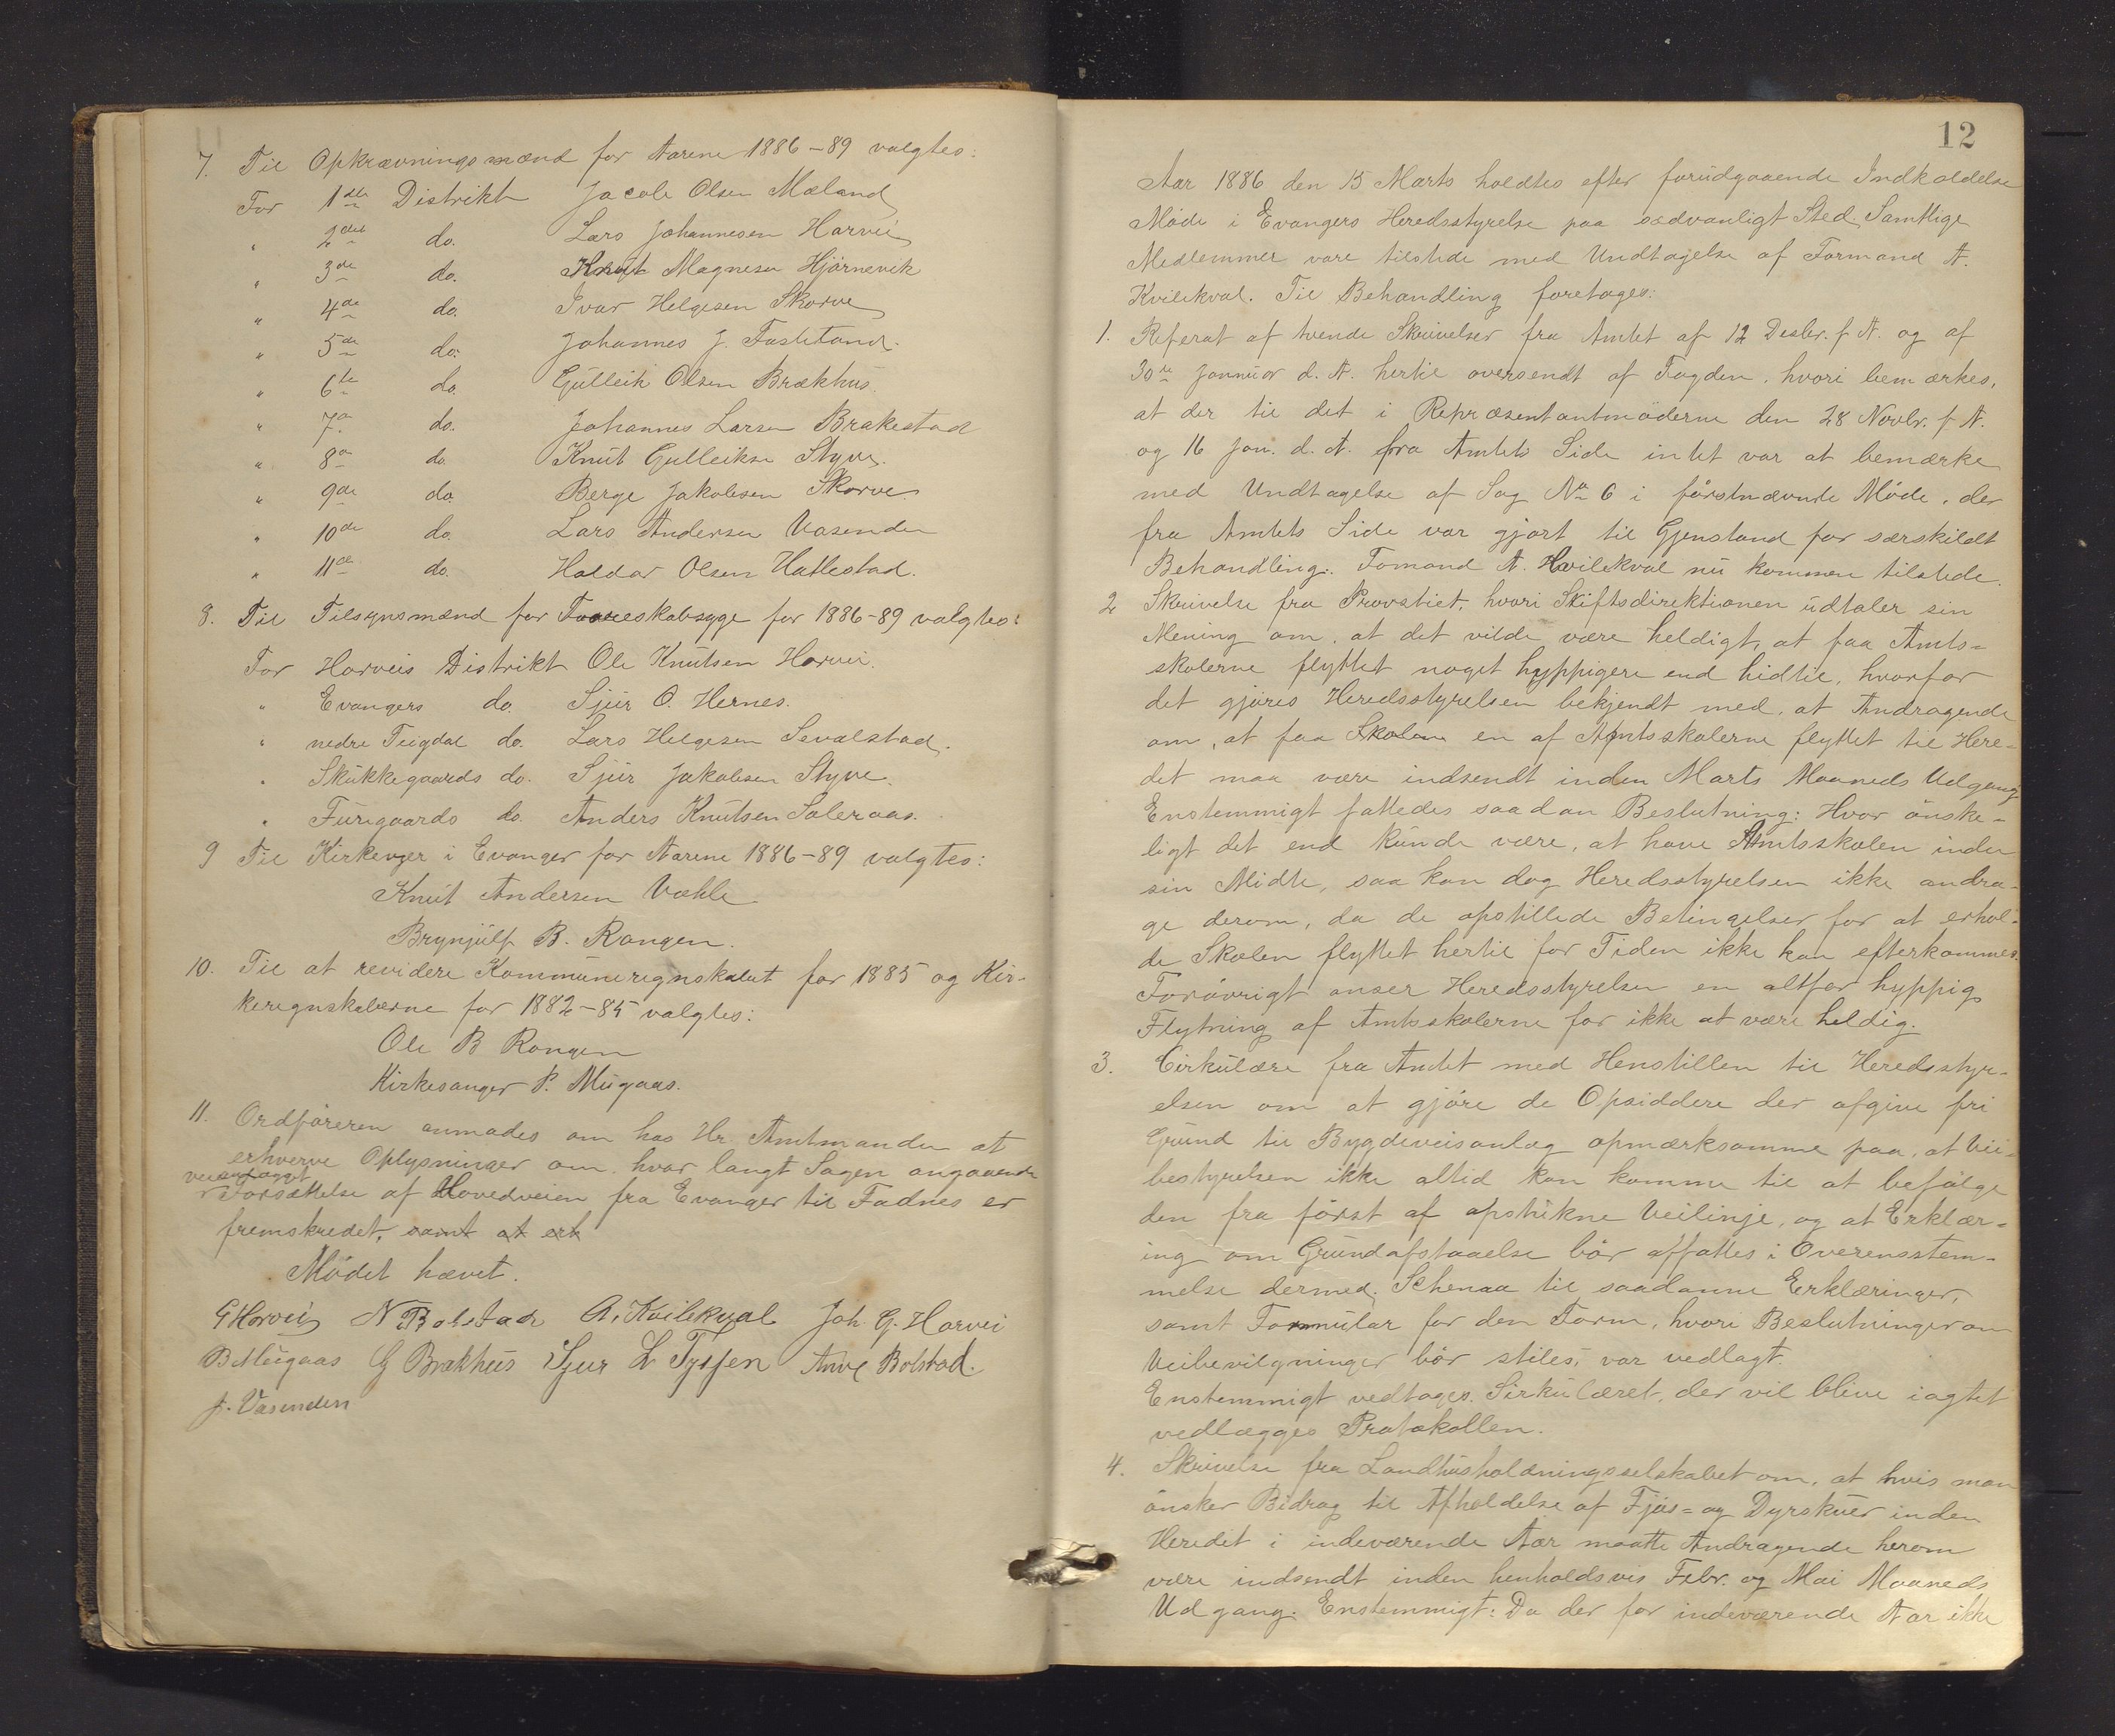 7. Til Opkrævningsmænd for Aarene 1886-89 valgtes:
For 1ste Distrikt Jacob Olsen Mæland
" 2det do. Lars Johannesen Horvei
" 3de do. Knut Magnesen Hjörnevik
" 4de do. Ivar Helgesen Skorve
" 5te do. Johannes J. Fasteland.
" 6te do. Gulleik Olsen Brækhus.
" 7de do. Johannes Larsen Brakestad
" 8de do. Knut Gulleiksen Styve.
" 9de do. Berge Jakobsen Skorve
" 10de do. Lars Andersen Vasenden
" 11te do. Haldor Olsen Hatlestad.
8. Til Tilsynsmænd for Faareskabsyge for 1886-89 valgtes:
For Horveis Distrikt Ole Knutsen Horvei.
" Evangers do. Sjur O. Hernes.
" nedre Teigdal do. Lars Helgesen Sevalstad.
" Skukkegaards do. Sjur Jakobsen Styve.
" Furegaards do. Anders Knutsen Soleraas.
9 Til Kirkeverger i Evanger for Aarene 1886-89 valgtes:
Knut Andersen Væhle
Brynjulf B. Rongen.
10. Til at revidere Kommuneregnskabet for 1885 og Kir-
keregnskaberne for 1882-85 valgtes:
Ole B Rongen
Kirkesanger P. Mugaas.
11. Ordföreren anmodes om hos Hr. Amtmanden at
erhverve Oplysninger om, hvor langt Sagen angaaende
Forsættelse af Hovedveien fra Evanger til Fadnes er
fremskredet, samt at erh
Mödet hævet.
G Horvei N Bolstad A. Kvilekval Joh. G. Horvei
B Mugaas G Brækhus Sjur L Tyssen Arve Bolstad.
J. Vasenden
12
Aar 1886 den 15 Marts holdtes efter forudgaaende Indkaldelse
Möde i Evangers Heredsstyrelse paa sædvanligt Sted. Samtlige
Medlemmer vare tilstede med Undtagelse af Formand A.
Kvilekval. Til Behandling foretages:
1. Referat af tvende Skrivelser fra Amtet af 12 Desbr. f. A. og af
30te Januar d. A. hertil oversendt af Fogden, hvori bemærkes,
at der til det i Repræsentantmöderne den 28 Novbr. f. A.
og 16 Jan. d. A. fra Amtets Side intet var at bemærke
med Undtagelse af Sag No 6 i förstnævnte Möde, der
fra Amtets Side var gjort til Gjenstand for særskildt
Behandling. Fomand A. Kvilekval nu kommen tilstede.
2 Skrivelse fra Provstiet, hvori Skiftsdirektionen udtaler sin
Mening om, at det vilde være heldigt, at faa Amts-
skolerne flyttet noget hyppigere end hidtil, hvorfor
det gjöres Heredsstyrelsen bekjendt med, at Andragende
om, at faa Skolen en af Amtsskolerne flyttet til Here-
det maa være indsendt inden Marts Maaneds Udgang
Enstemmigt fattedes saadan Beslutning: Hvor önske-
ligt det end kunde være, at have Amtsskolen inden
sin Midte, saa kan dog Heredsstyrelsen ikke andra-
ge derom, da de opstillede Betingelser for at erhol-
de Skolen flyttet hertil for Tiden ikke kan efterkommes.
Forövrigt anser Heredsstyrelsen en altfor hyppig
Flytning af Amtsskolerne for ikke at være heldig.
3. Cirkulære fra Amtet med Henstillen til Heredsstyr-
elsen om at gjöre de Opsiddere der afgive fri
Grund til Bygdeveisanlæg opmærksomme paa, at Vei-
bestyrelsen ikke altid kan komme til at befölge
den fra först af opstukne Veilinje, og at Erklær-
ing om Grundafstaaelse bör affattes i Overensstem-
melse dermed. Schema til saadanne Erklæringer,
samt Formular for den Form, hvori Beslutninger om
Veibevilgninger bör stiles, var vedlagt.
Enstemmigt vedtages. Sirkulæret, der vil blive iagttet
vedlægges Protokollen.
4. Skrivelse fra Landhusholdningsselskabet om, at hvis man
önsker Bidrag til Afholdelse af Fjös- og Dyrskuer inden
Heredet i indeværende Aar maatte Andragende herom
være indsendt inden henholdsvis Febr. og Mai Maaneds
Udgang. Enstemmigt: Da der for indeværende Aar ikke